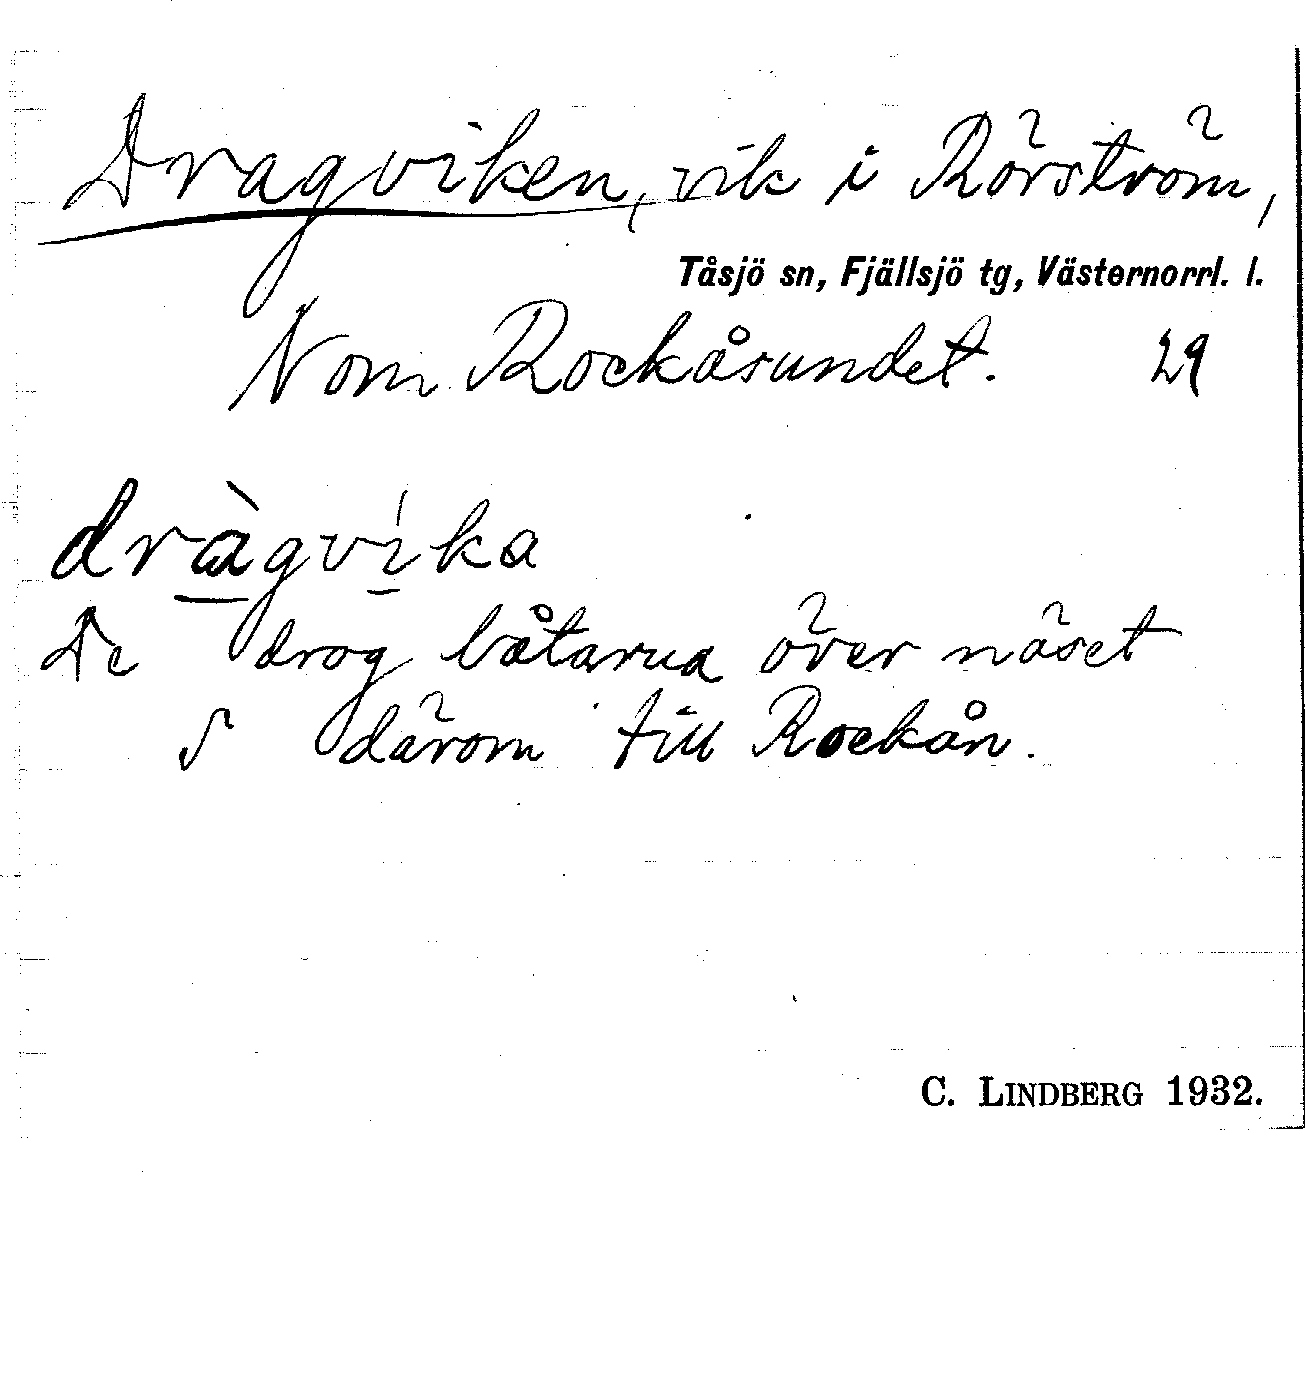 Dragviken, vik i Rörström,
Tåsjö sn, Fjällsjö tg, Västernorrl. l.
N om Rockåsundet. 29
dràgvíka
De drog båtarna över näset
S därom till Rockån.
C. LINDBERG 1932.